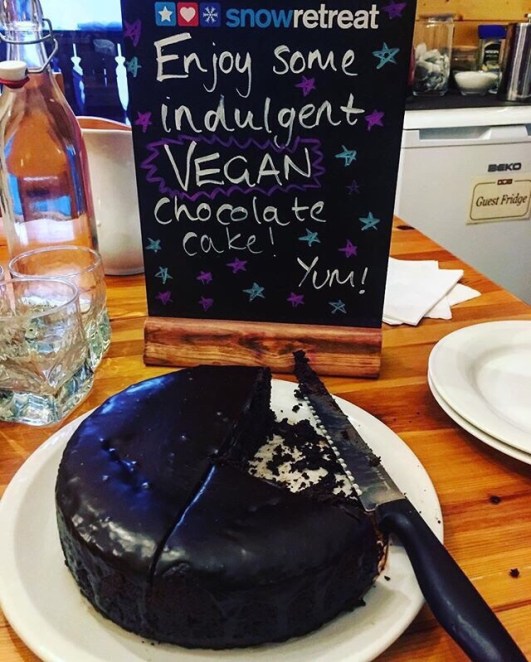 snowretreat
Enjoy some
indulgent
VEGAN
chocolate
cake!
Yum!
BEKO
Guest Fridge